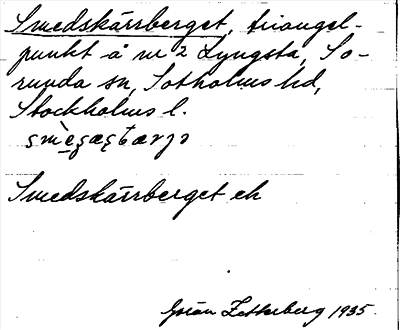 Smedskärrberget, triangel-
punkt å nr 2 Lyngsta, So-
runda sn, Sotholms hd,
Stockholms l.
Smedskärrberget ek
Göran Zetterberg 1935.